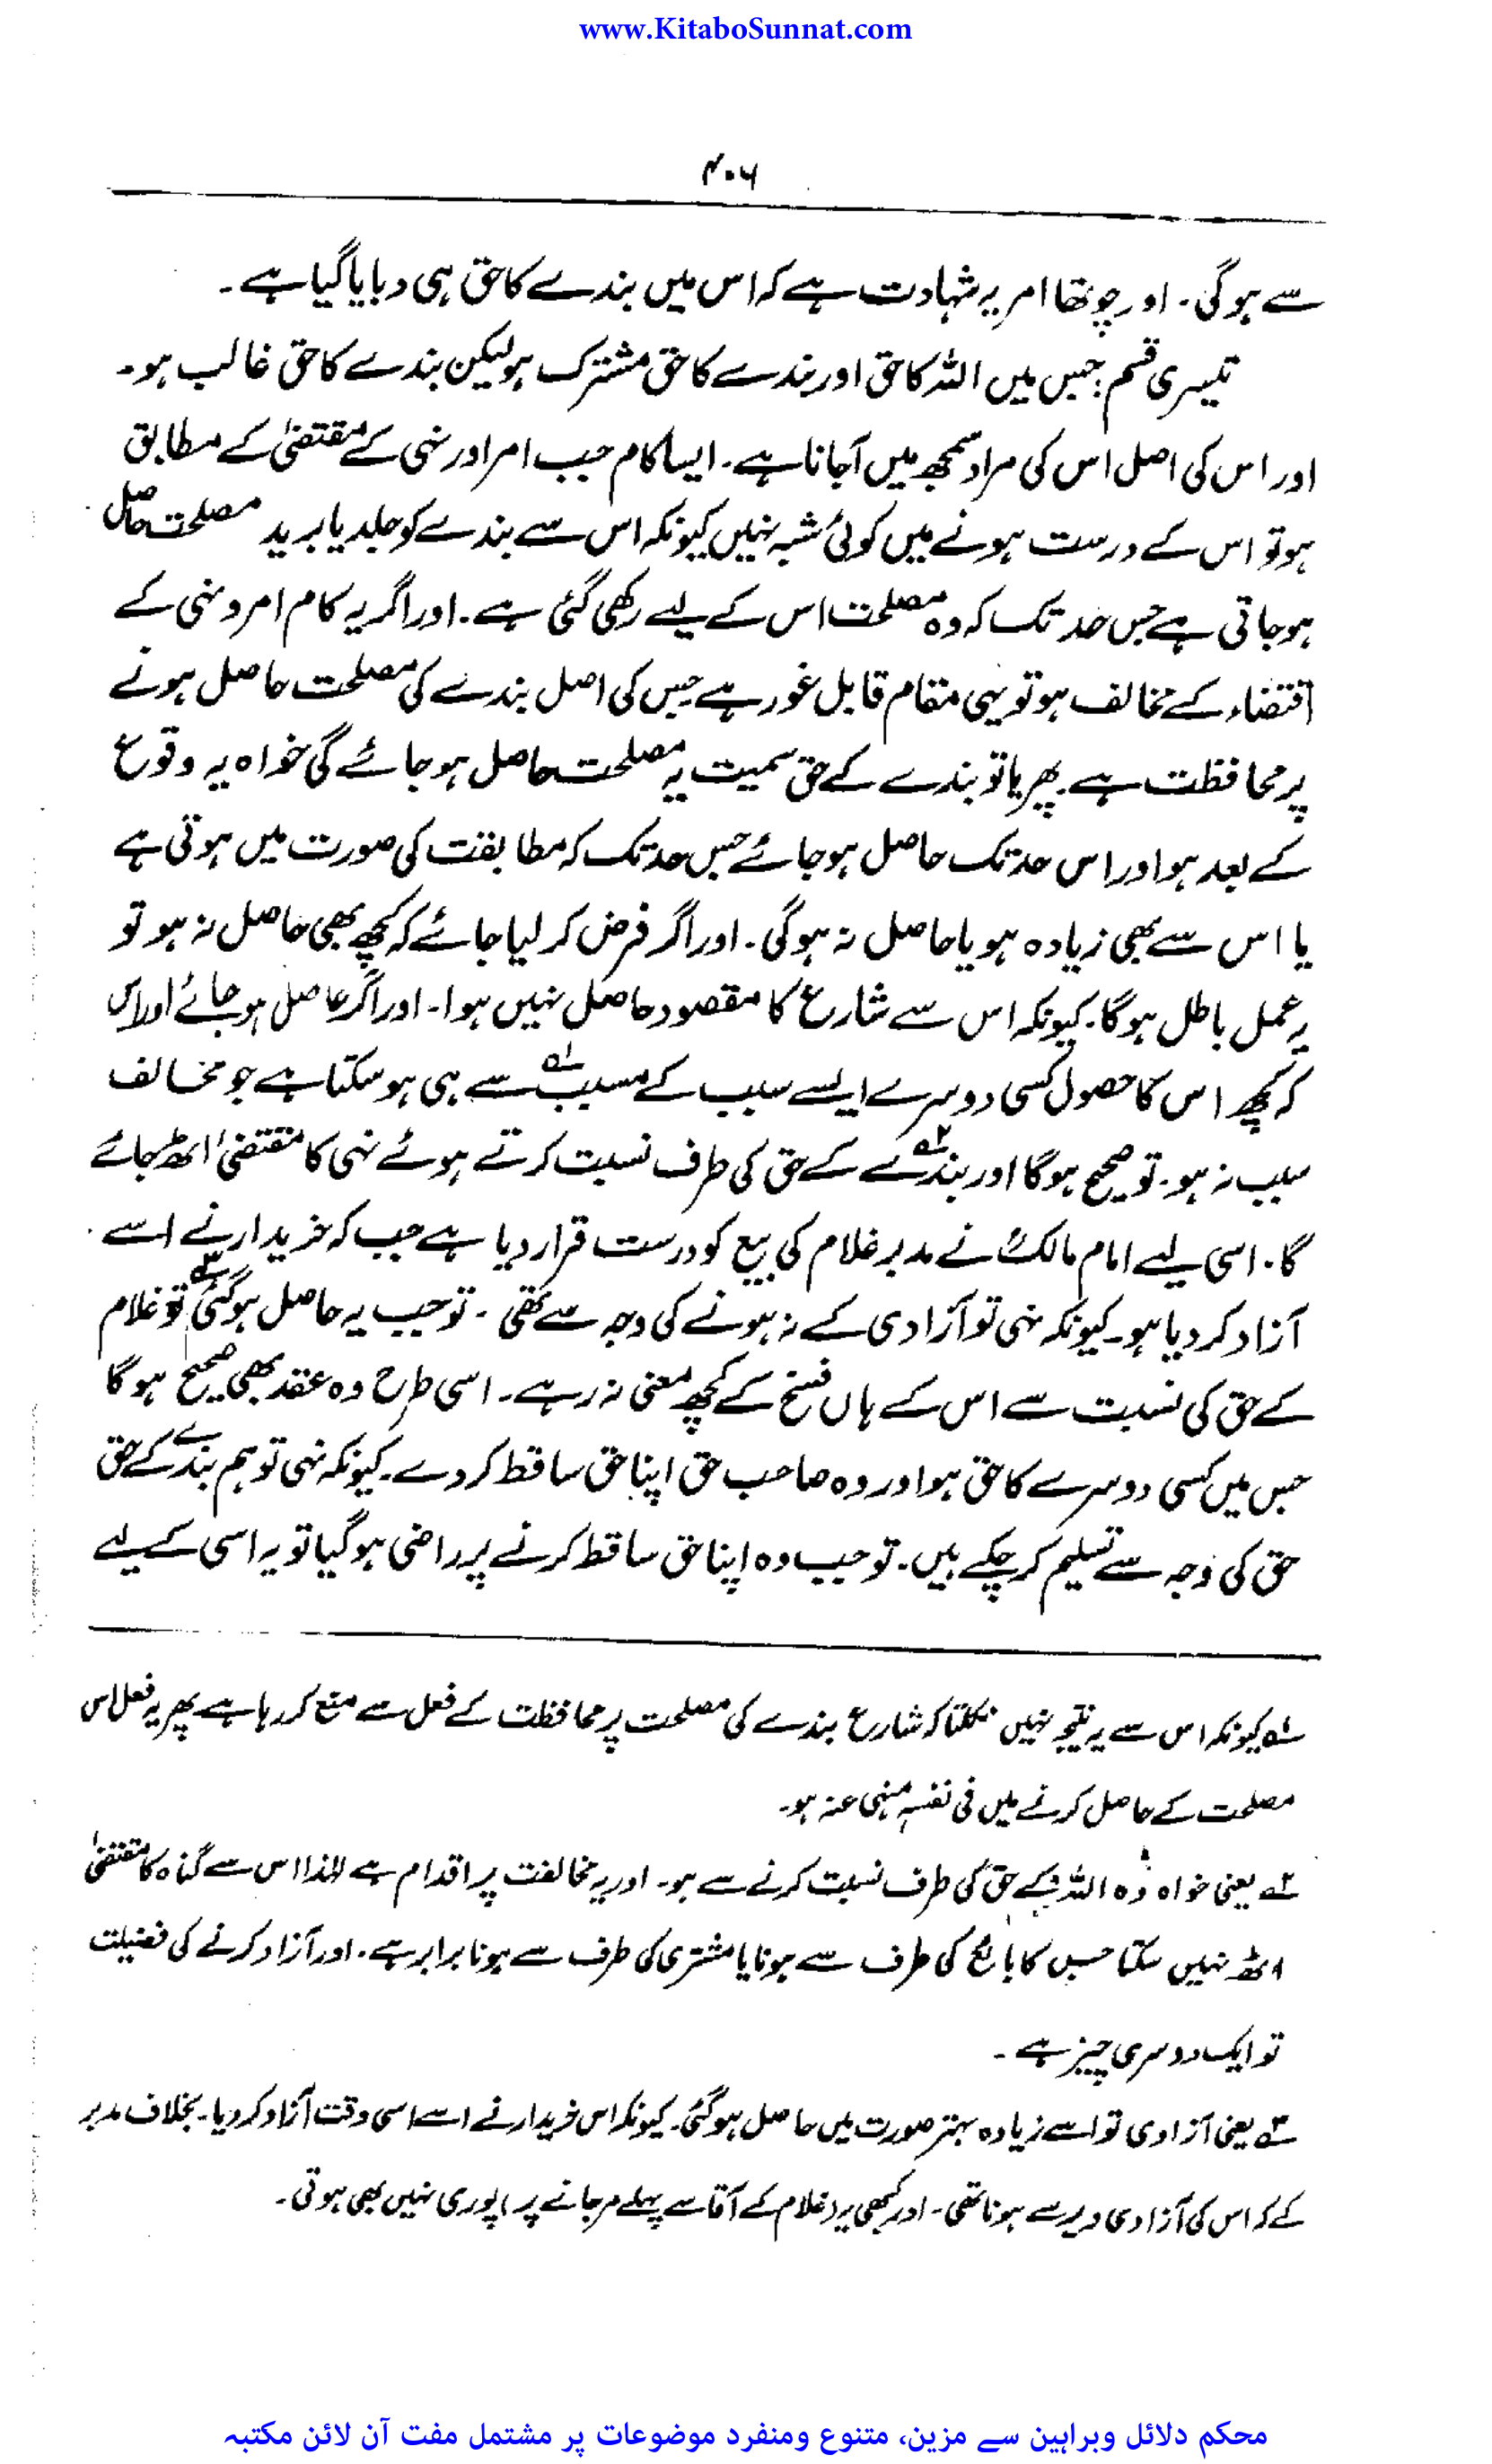 www.KitaboSunnat.com
۴۰۶
سے ہوگی۔ اور چوتھا امر یہ شہادت ہے کہ اس میں بندے کا حق ہی دبایا گیا ہے۔
تیسری قسم: جس میں اللہ کا حق اور بندے کا حق مشترک ہو لیکن بندے کا حق غالب ہو۔
اور اس کی اصل اس کی مراد سمجھ میں آجانا ہے۔ ایسا کام جب امر اور نہی کے مقتضیٰ کے مطابق
ہو تو اس کے درست ہونے میں کوئی شبہ نہیں کیونکہ اس سے بندے کو جلد یا بدیر مصلحت حاصل
ہوجاتی ہے جس حد تک کہ وہ مصلحت اس کے لیے رکھی گئی ہے۔ اور اگر یہ کام امر و نہی کے
اقتضاء کے مخالف ہو تو یہی مقام قابل غور ہے جس کی اصل بندے کی مصلحت حاصل ہونے
پر محافظت ہے پھر یا تو بندے کے حق سمیت یہ مصلحت حاصل ہو جائے گی خواہ یہ وقوع
کے بعد ہو اور اس حد تک حاصل ہوجائے جس حد تک کہ مطابقت کی صورت میں ہوتی ہے
یا اس سے بھی زیادہ ہو یا حاصل نہ ہوگی۔ اور اگر فرض کر لیا جائے کہ کچھ بھی حاصل نہ ہو تو
یہ عمل باطل ہوگا۔ کیونکہ اس سے شارع کا مقصود حاصل نہیں ہوا۔ اور اگر حاصل ہوجائے اور اس
کہ کچھ اس کا حصول کسی دوسرے ایسے سبب کے مسبب۱؎ سے ہی ہوسکتا ہے جو مخالف
سبب نہ ہو۔ تو صحیح ہوگا اور بندے۲؎ کے حق کی طرف نسبت کرتے ہوئے نہی کا مقتضیٰ اٹھ جائے
گا۔ اسی لیے امام مالکؒ نے مدبر غلام کی بیع کو درست قرار دیا ہے جب کہ خریدار نے اسے
آزاد کر دیا ہو۔ کیونکہ نہی تو آزادی کے نہ ہونے کی وجہ سے تھی۔ تو جب یہ حاصل ہوگئی۳؎ تو غلام
کے حق کی نسبت سے اس کے ہاں فسخ کے کچھ معنی نہ رہے۔ اسی طرح وہ عقد بھی صحیح ہوگا
جس میں کسی دوسرے کا حق ہو اور وہ صاحب حق اپنا حق ساقط کر دے۔ کیونکہ نہی تو ہم بندے کے حق
حق کی وجہ سے تسلیم کرچکے ہیں۔ تو جب وہ اپنا حق ساقط کرنے پر راضی ہوگیا تو یہ اسی کے لیے
۱؎ کیونکہ اس سے یہ نتیجہ نہیں نکلتا کہ شارع بندے کی مصلحت پر محافظت کے فعل سے منع کر رہا ہے پھر یہ فعل اس
مصلحت کے حاصل کرنے میں فی نفسہٖ منہی عنہ ہو۔
۲؎ یعنی خواہ وہ اللہ کے حق کی طرف نسبت کرنے سے ہو۔ اور یہ مخالفت پر اقدام ہے لہٰذا اس سے گناہ کا مقتضیٰ
اٹھ نہیں سکتا جس کا بائع کی طرف سے ہونا یا مشتری کی طرف سے ہونا برابر ہے۔ اور آزاد کرنے کی فضیلت
تو ایک دوسری چیز ہے۔
۳؎ یعنی آزادی تو اسے زیادہ بہتر صورت میں حاصل ہوگئی۔ کیونکہ اس خریدار نے اسے اسی وقت آزاد کردیا۔ بخلاف مدبر
کے کہ اس کی آزادی دیر سے ہونا تھی۔ اور کبھی یہ غلام کے آقا سے پہلے مرجانے پر پوری نہیں بھی ہوتی۔
محکم دلائل وبراہین سے مزین، متنوع ومنفرد موضوعات پر مشتمل مفت آن لائن مکتبہ